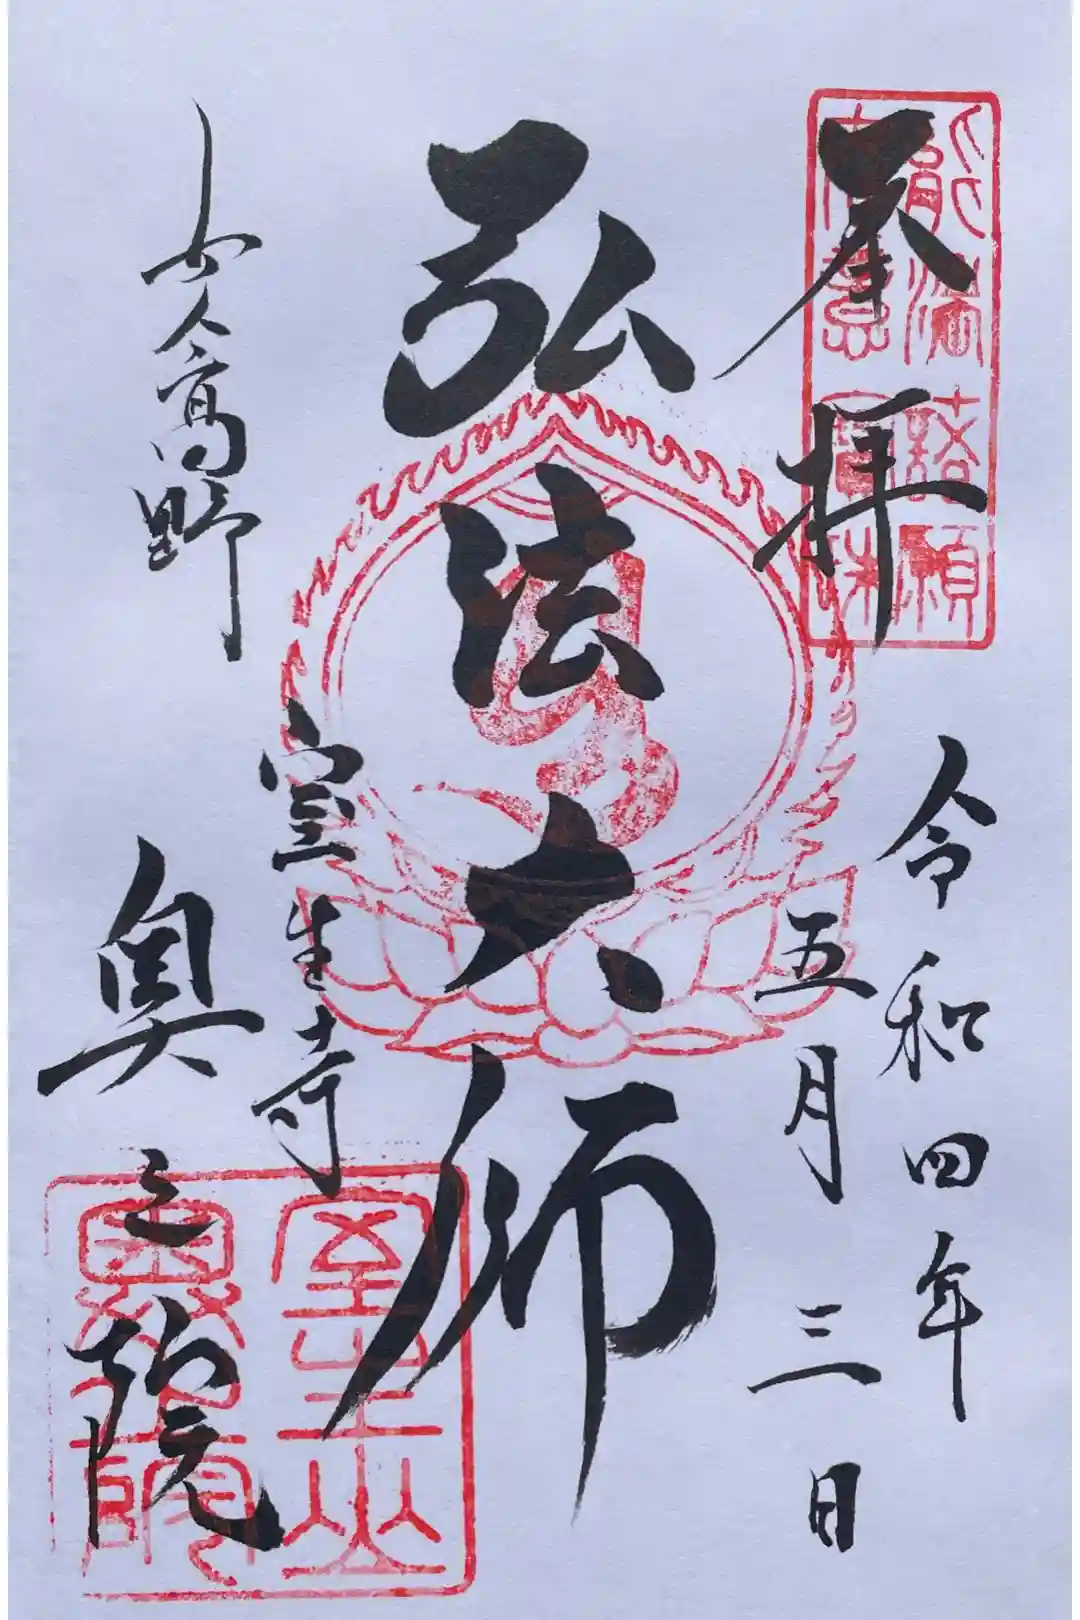 奉拝
令和四年
五月三日
弘法大師
女人高野
室生寺
奥之院
能満諸願
室生山
奥院